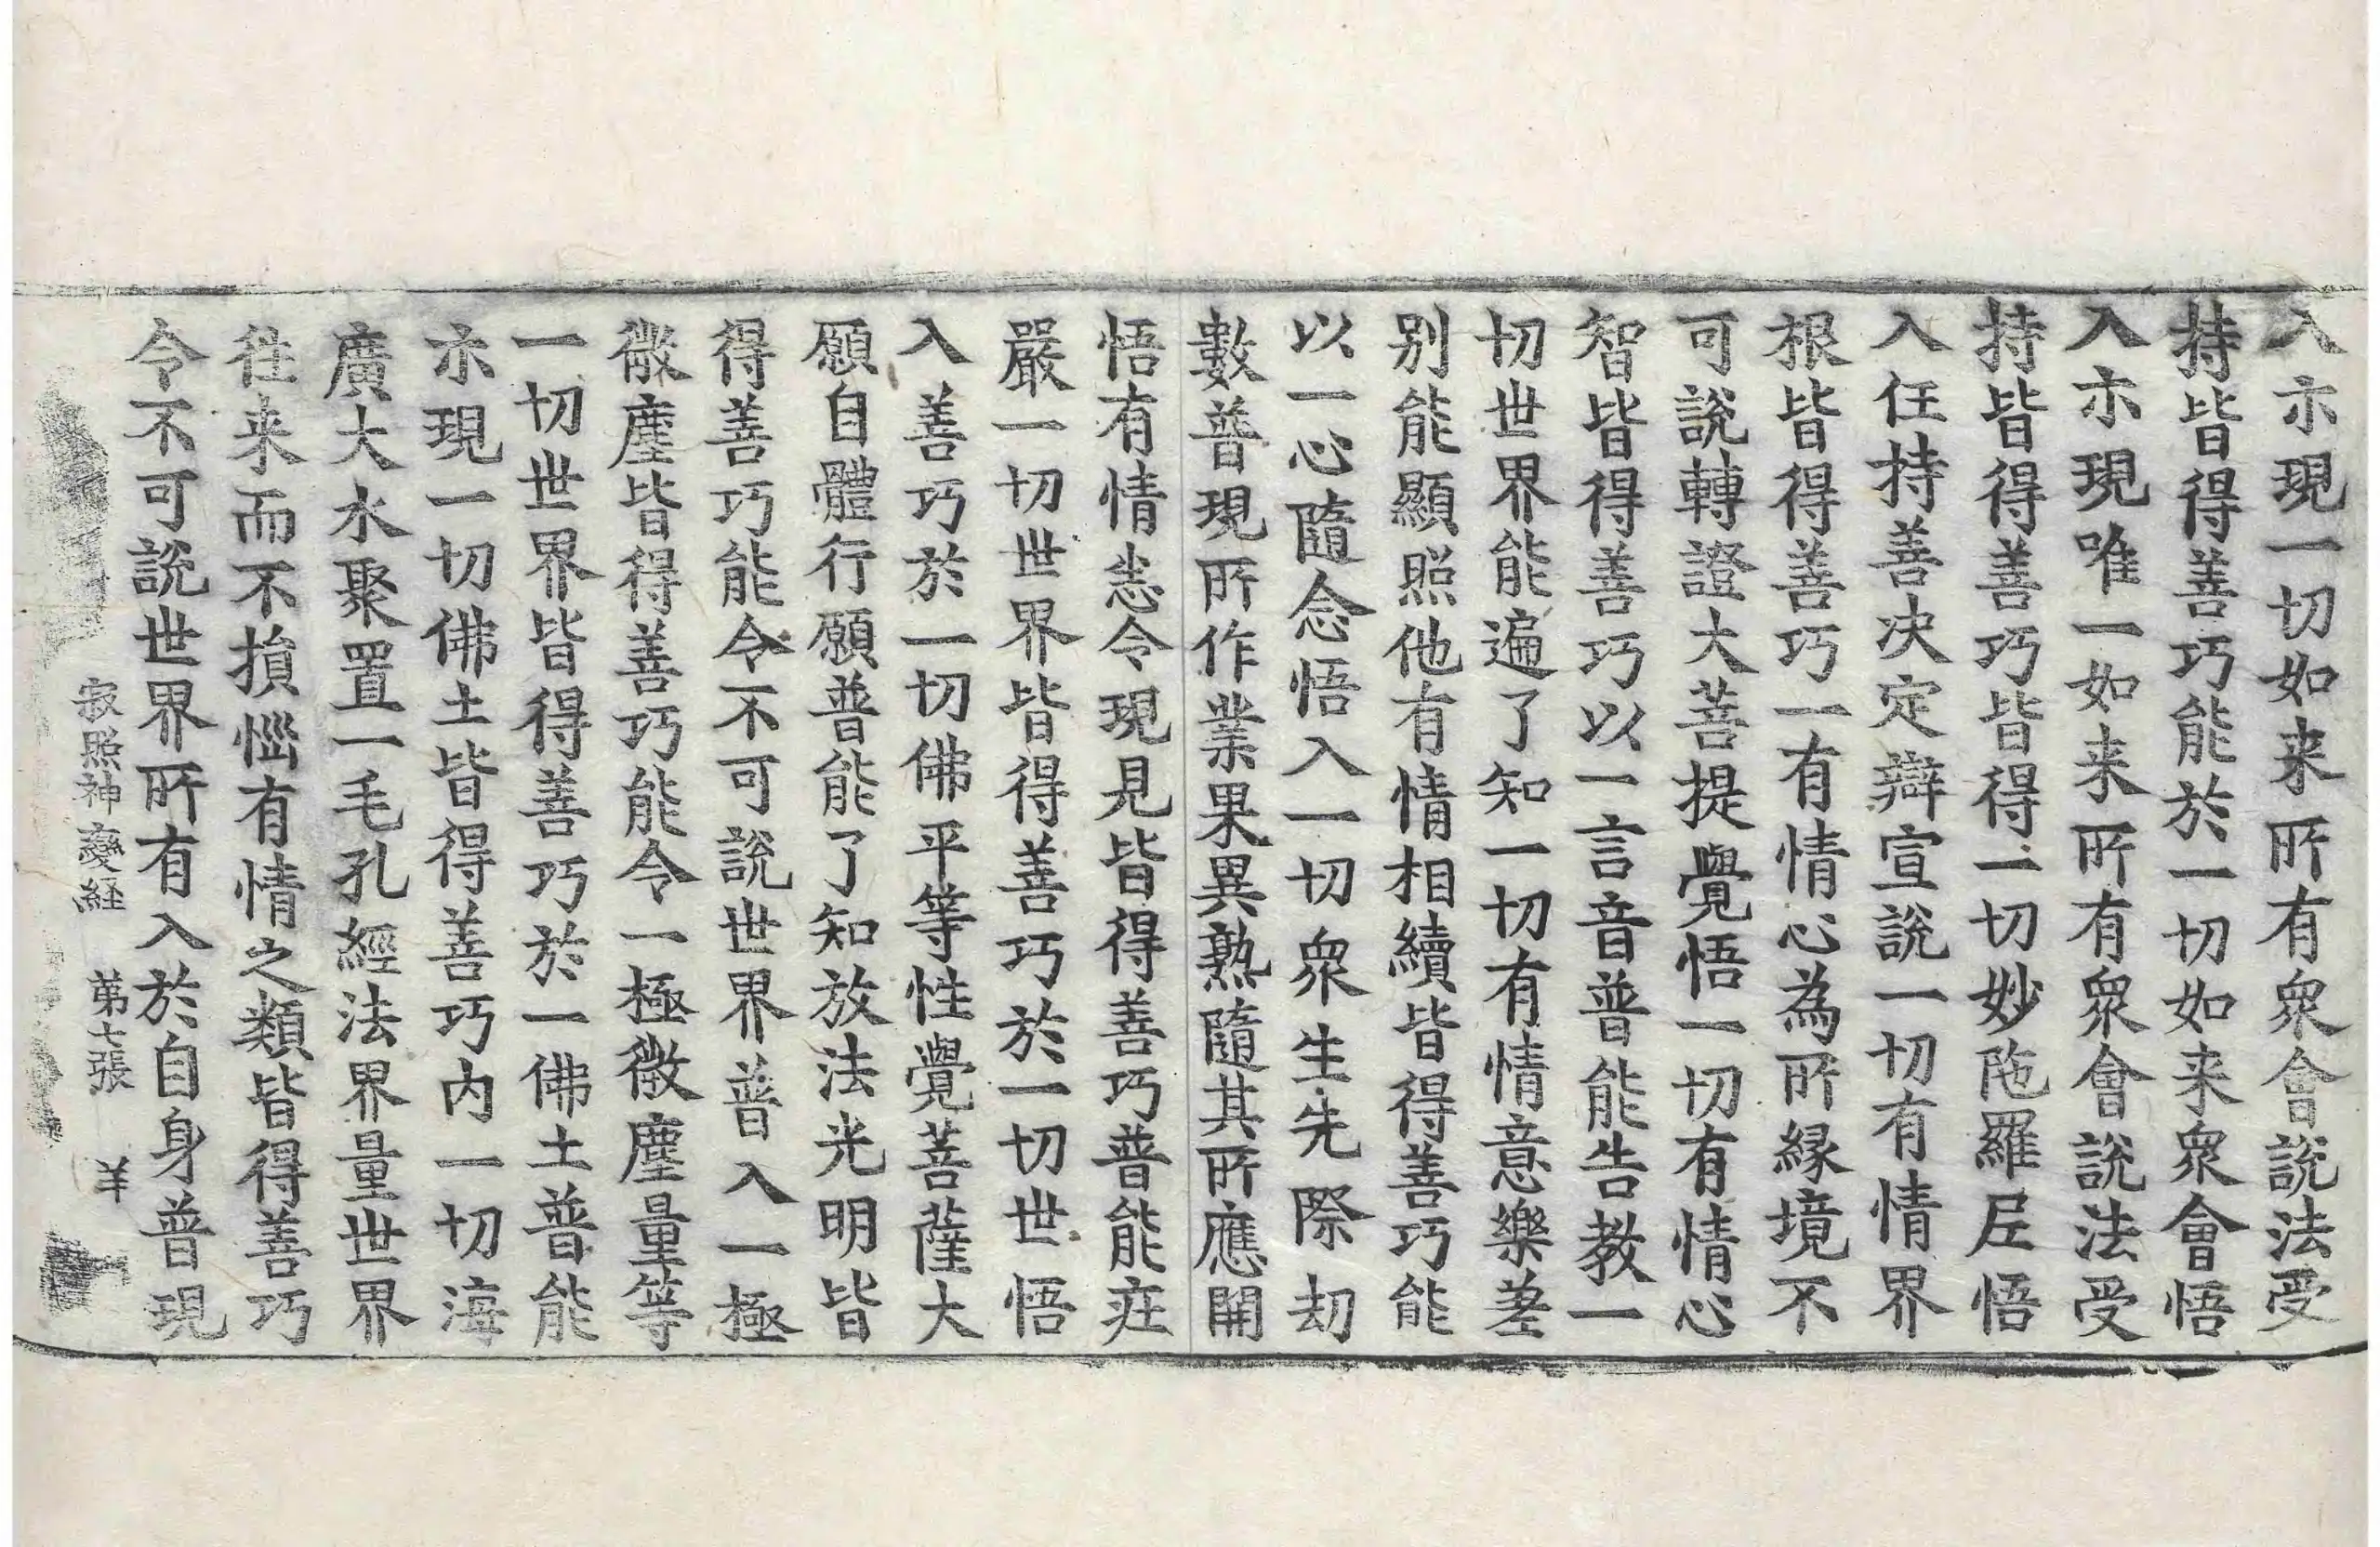 入示現一切如来所有衆會說法受
持皆得善巧能於一切如来衆會悟
入示現唯一如来所有衆會說法受
持皆得善巧皆得一切妙陁羅尼悟
入任持善决定辯宣說一切有情界
根皆得善巧一有情心為所緣境不
可說轉證大菩提覺悟一切有情心
智皆得善巧以一言音普能告教一
切世界能遍了知一切有情意樂差
别能顯照他有情相續皆得善巧能
以一心隨念悟入一切衆生先際劫
數普現所作業果異熟隨其所應開
悟有情恙令現見皆得善巧普能疰
嚴一切世界皆得善巧於一切世悟
入善巧於一切佛平等性覺菩薩大
願自體行願普能了知放法光明皆
得善巧能令不可說世界普入一極
微塵皆得善巧能令一極微塵量等
一切世界皆得善巧於一佛土普能
示現一切佛土皆得善巧内一切海
廣大水聚置一毛孔經法界量世界
往来而不損惱有情之類皆得善巧
令不可說世界所有入於自身普現
寂照神變経 苐七張 羊